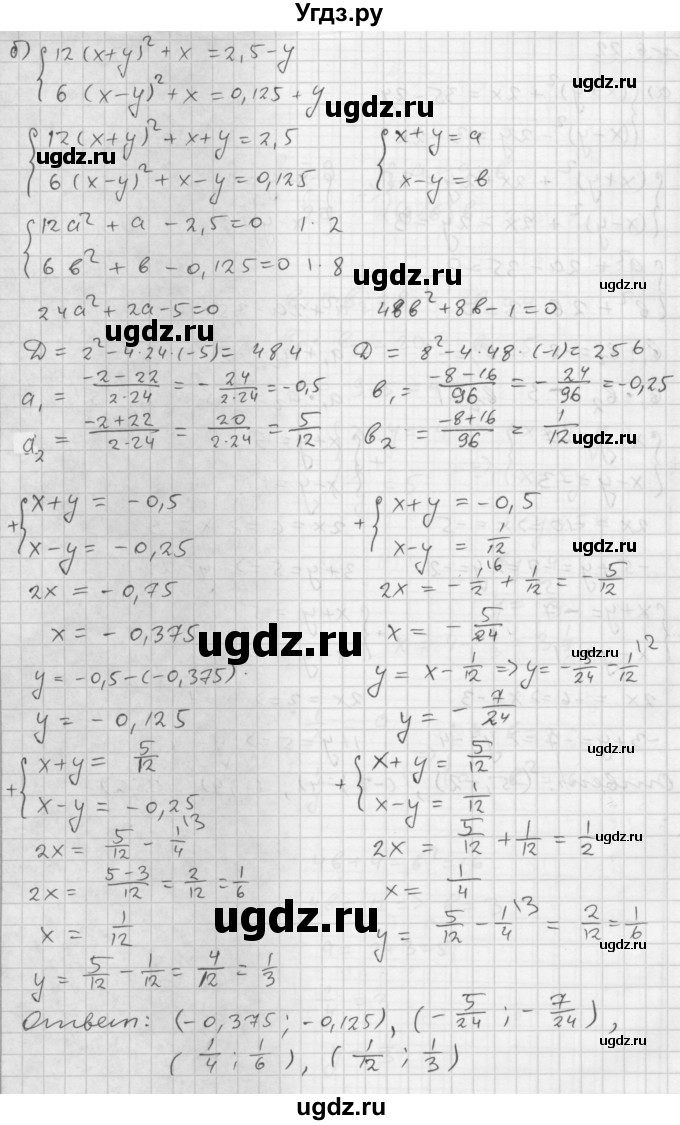 Угдз.ру
б) { 12 (x+y)² + x = 2,5 - y
6 (x-y)² + x = 0,125 + y
ugdz.ru
ugdz.ru
{ 12(x+y)² + x+y = 2,5 { x+y = a
6 (x-y)² + x-y = 0,125 x-y = в
ugdz.ru
ugdz.ru
{ 12a² + a - 2,5 = 0 | · 2
6в² + в - 0,125 = 0 | · 8
ugdz.ru
ugdz.ru
24a² + 2a - 5 = 0 48в² + 8в - 1 = 0
ugdz.ru
Д = 2² - 4·24·(-5) = 484 Д = 8² - 4·48·(-1) = 256
a₁ = (-2-22)/(2·24) = - 24/(2·24) = -0,5 в₁ = (-8-16)/96 = - 24/96 = -0,25
a₂ = (-2+22)/(2·24) = 20/(2·24) = 5/12 в₂ = (-8+16)/96 = 1/12
ugdz.ru
ugdz.ru
+ { x+y = -0,5 + { x+y = -0,5
x-y = -0,25 x-y = 1/12
ugdz.ru
2x = -0,75 2x = - 1/2 \6 + 1/12 = - 5/12
x = -0,375 x = - 5/24
ugdz.ru
ugdz.ru
y = -0,5-(-0,375) y = x - 1/12 => y = - 5/24 - 1/12 \2
y = -0,125 y = - 7/24
ugdz.ru
+ { x+y = 5/12 + { x+y = 5/12
x-y = -0,25 x-y = 1/12
ugdz.ru
ugdz.ru
2x = 5/12 - 1/4 \3 2x = 5/12 + 1/12 = 1/2
2x = (5-3)/12 = 2/12 = 1/6 x = 1/4
ugdz.ru
ugdz.ru
x = 1/12 y = 5/12 - 1/4 \3 = 2/12 = 1/6
y = 5/12 - 1/12 = 4/12 = 1/3
Ответ: (-0,375; -0,125), (- 5/24 ; - 7/24),
ugdz.ru
(1/4 ; 1/6), (1/12 ; 1/3)
ugdz.ru